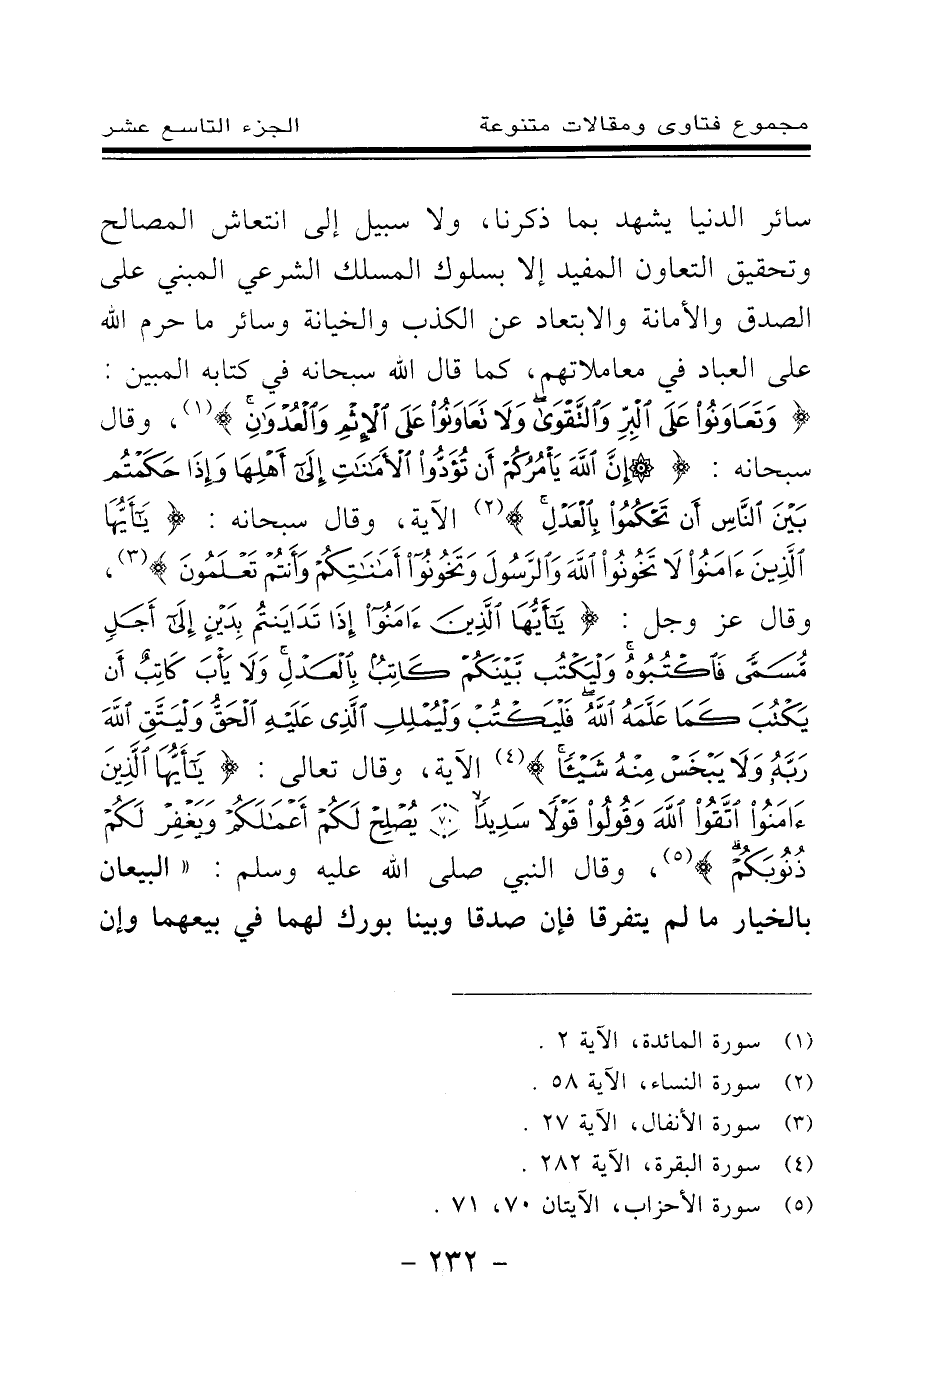 مجموع فتاوى ومقالات متنوعة الجزء التاسع عشر
سائر الدنيا يشهد بما ذكرنا، ولا سبيل إلى انتعاش المصالح
وتحقيق التعاون المفيد إلا بسلوك المسلك الشرعي المبني على
الصدق والأمانة والابتعاد عن الكذب والخيانة وسائر ما حرم الله
على العباد في معاملاتهم، كما قال الله سبحانه في كتابه المبين :
﴿ وَتَعَاوَنُوا۟ عَلَى ٱلْبِرِّ وَٱلتَّقْوَىٰ ۖ وَلَا تَعَاوَنُوا۟ عَلَى ٱلْإِثْمِ وَٱلْعُدْوَٰنِ ۚ ﴾(١)، وقال
سبحانه : ﴿ ۞ إِنَّ ٱللَّهَ يَأْمُرُكُمْ أَن تُؤَدُّوا۟ ٱلْأَمَٰنَٰتِ إِلَىٰٓ أَهْلِهَا وَإِذَا حَكَمْتُم
بَيْنَ ٱلنَّاسِ أَن تَحْكُمُوا۟ بِٱلْعَدْلِ ۚ ﴾(٢) الآية، وقال سبحانه : ﴿ يَٰٓأَيُّهَا
ٱلَّذِينَ ءَامَنُوا۟ لَا تَخُونُوا۟ ٱللَّهَ وَٱلرَّسُولَ وَتَخُونُوٓا۟ أَمَٰنَٰتِكُمْ وَأَنتُمْ تَعْلَمُونَ ﴾(٣)،
وقال عز وجل : ﴿ يَٰٓأَيُّهَا ٱلَّذِينَ ءَامَنُوٓا۟ إِذَا تَدَايَنتُم بِدَيْنٍ إِلَىٰٓ أَجَلٍ
مُّسَمًّى فَٱكْتُبُوهُ ۚ وَلْيَكْتُب بَّيْنَكُمْ كَاتِبٌۢ بِٱلْعَدْلِ ۚ وَلَا يَأْبَ كَاتِبٌ أَن
يَكْتُبَ كَمَا عَلَّمَهُ ٱللَّهُ ۚ فَلْيَكْتُبْ وَلْيُمْلِلِ ٱلَّذِى عَلَيْهِ ٱلْحَقُّ وَلْيَتَّقِ ٱللَّهَ
رَبَّهُۥ وَلَا يَبْخَسْ مِنْهُ شَيْـًٔا ۚ ﴾(٤) الآية، وقال تعالى : ﴿ يَٰٓأَيُّهَا ٱلَّذِينَ
ءَامَنُوا۟ ٱتَّقُوا۟ ٱللَّهَ وَقُولُوا۟ قَوْلًا سَدِيدًا ۝٧٠ يُصْلِحْ لَكُمْ أَعْمَٰلَكُمْ وَيَغْفِرْ لَكُمْ
ذُنُوبَكُمْ ۗ ﴾(٥)، وقال النبي صلى الله عليه وسلم : « البيعان
بالخيار ما لم يتفرقا فإن صدقا وبينا بورك لهما في بيعهما وإن
(١) سورة المائدة، الآية ٢ .
(٢) سورة النساء، الآية ٥٨ .
(٣) سورة الأنفال، الآية ٢٧ .
(٤) سورة البقرة، الآية ٢٨٢ .
(٥) سورة الأحزاب، الآيتان ٧٠، ٧١ .
- ٢٣٢ -